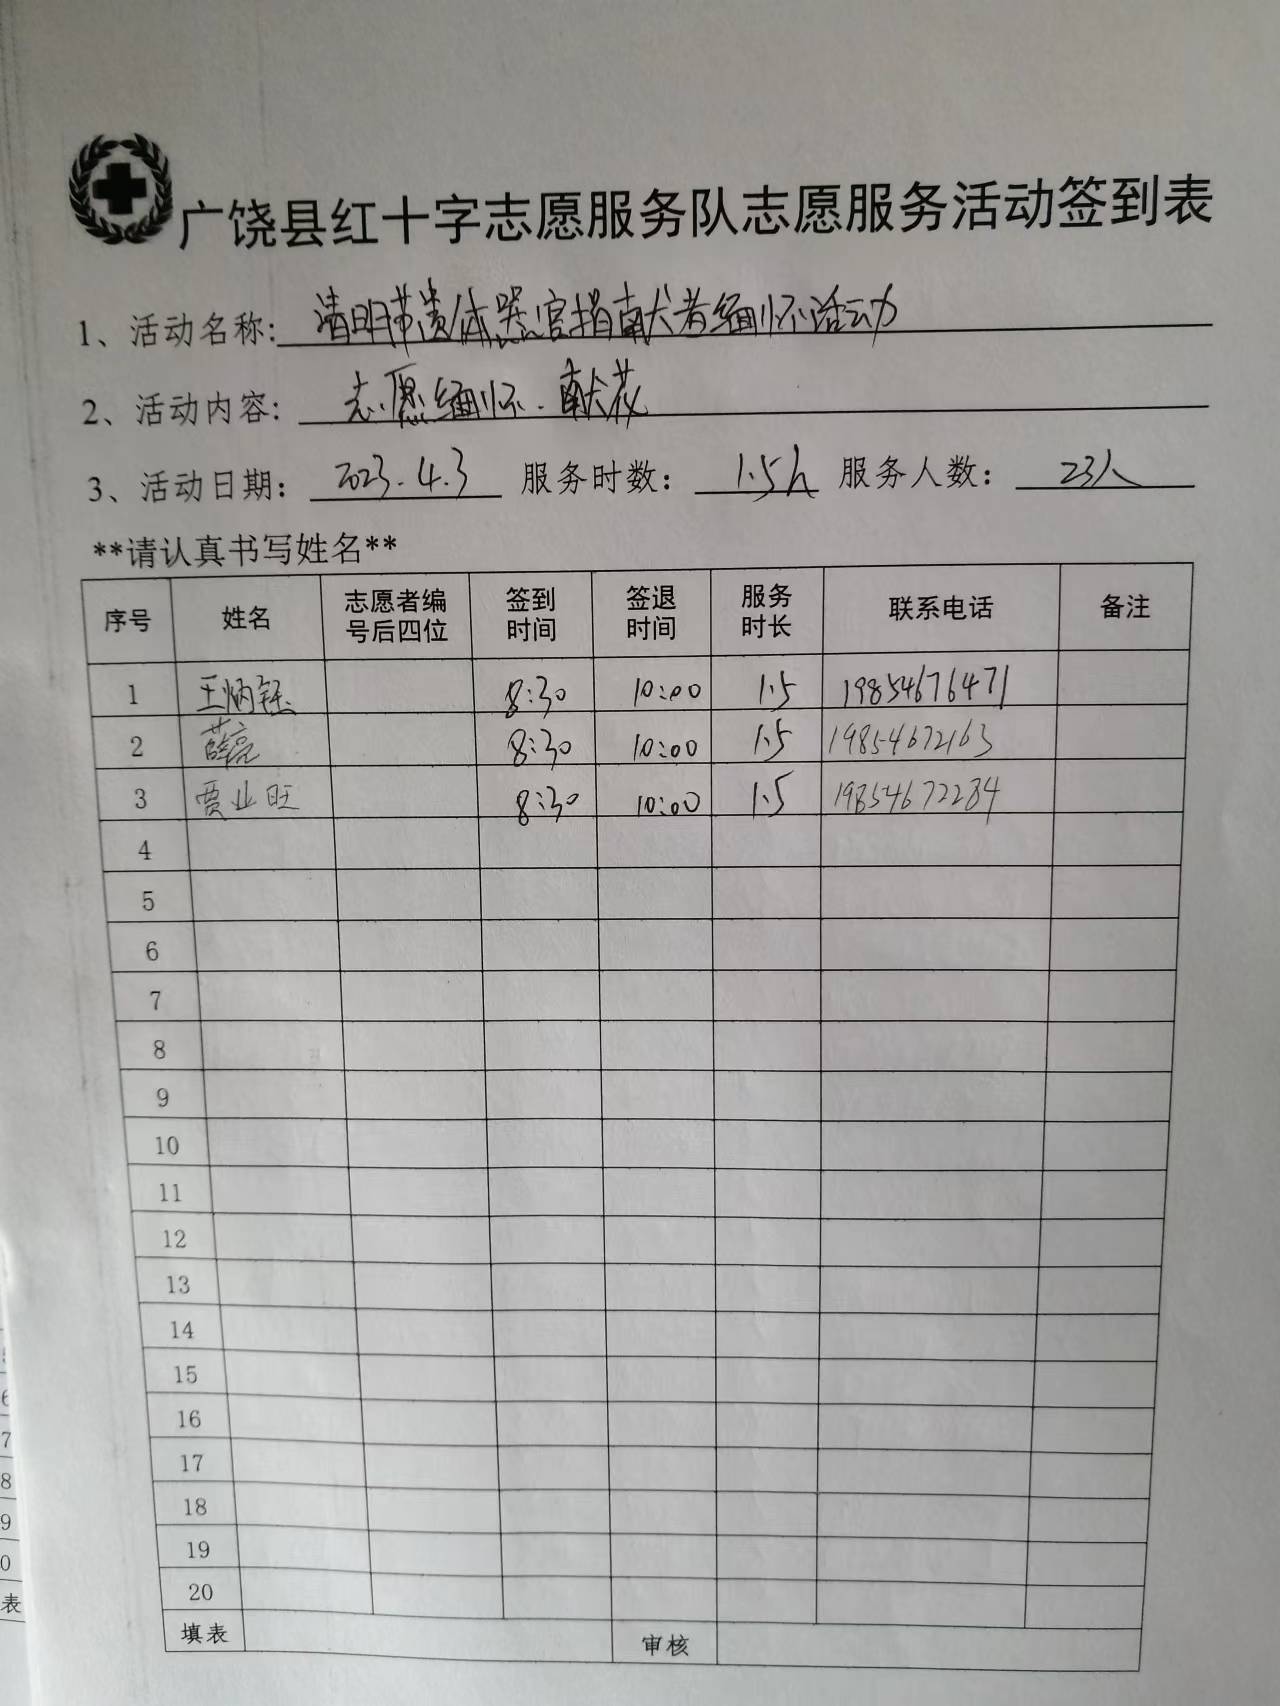 广饶县红十字志愿服务队志愿服务活动签到表
1、活动名称: 清明节遗体器官捐献者缅怀活动
2、活动内容: 志愿缅怀.献花
3、活动日期: 2023.4.3 服务时数: 1.5h 服务人数: 23人
**请认真书写姓名**
序号 姓名 志愿者编号后四位 签到时间 签退时间 服务时长 联系电话 备注
1 王炳钰 8:30 10:00 1.5 19854676471
2 薛亮 8:30 10:00 1.5 19854672163
3 贾业旺 8:30 10:00 1.5 19854672284
4
5
6
7
8
9
10
11
12
13
14
15
16
17
18
19
20
填表 审核
6
7
8
9
0
表